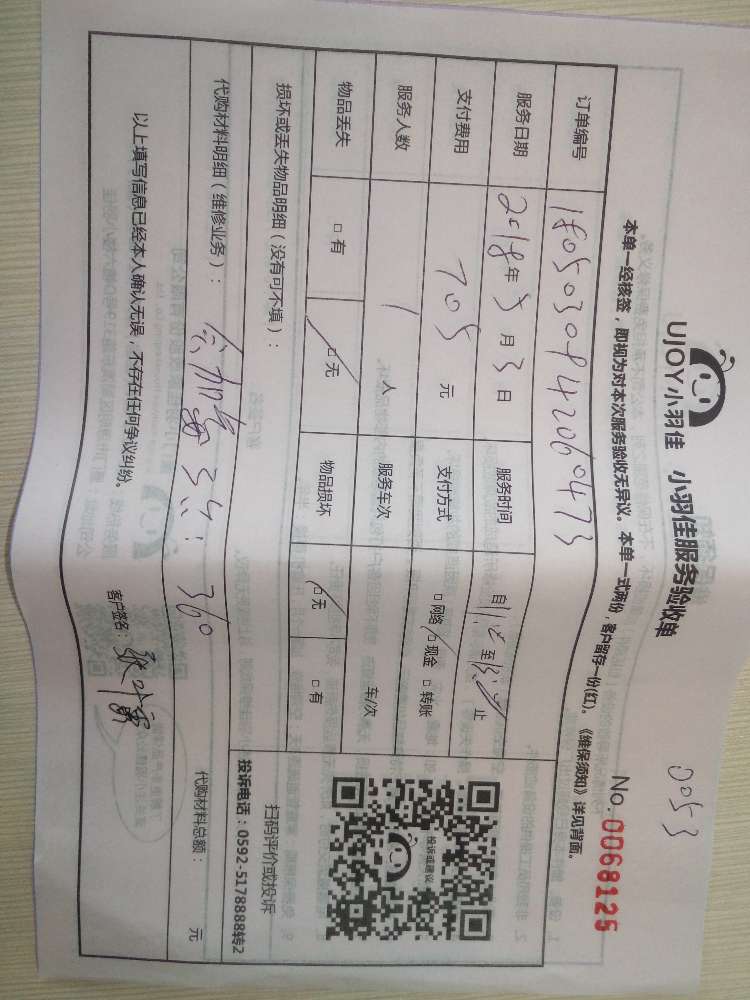 0053
UJOY小羽佳 小羽佳服务验收单
No.0068125
本单一经核签，即视为对本次服务验收无异议。本单一式两份，客户留存一份(红)。《维保须知》详见背面。
订单编号 1805030942060473
服务日期 2018年5月3日 服务时间 自 至 止
支付费用 705元 支付方式 □网络 □现金 □转账
服务人数 1人 服务车次 车/次
物品丢失 □有 □无 物品损坏 □无 □有
损坏或丢失物品明细（没有可不填）：
扫码评价或投诉
投诉电话：0592-5178888转2
投诉或建议
代购材料明细（维修业务）： 360
代购材料总额： 元
以上填写信息已经本人确认无误，不存在任何争议纠纷。
客户签名：